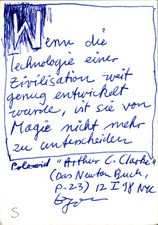 Wenn die
Technologie einer
Zivilisation weit
genug entwickelt
wurde, ist sie von
Magie nicht mehr
zu unterscheiden
"Arthur C. Clarke"
(Das Newton Buch,
p. 23) 12 I 98 NYC
S